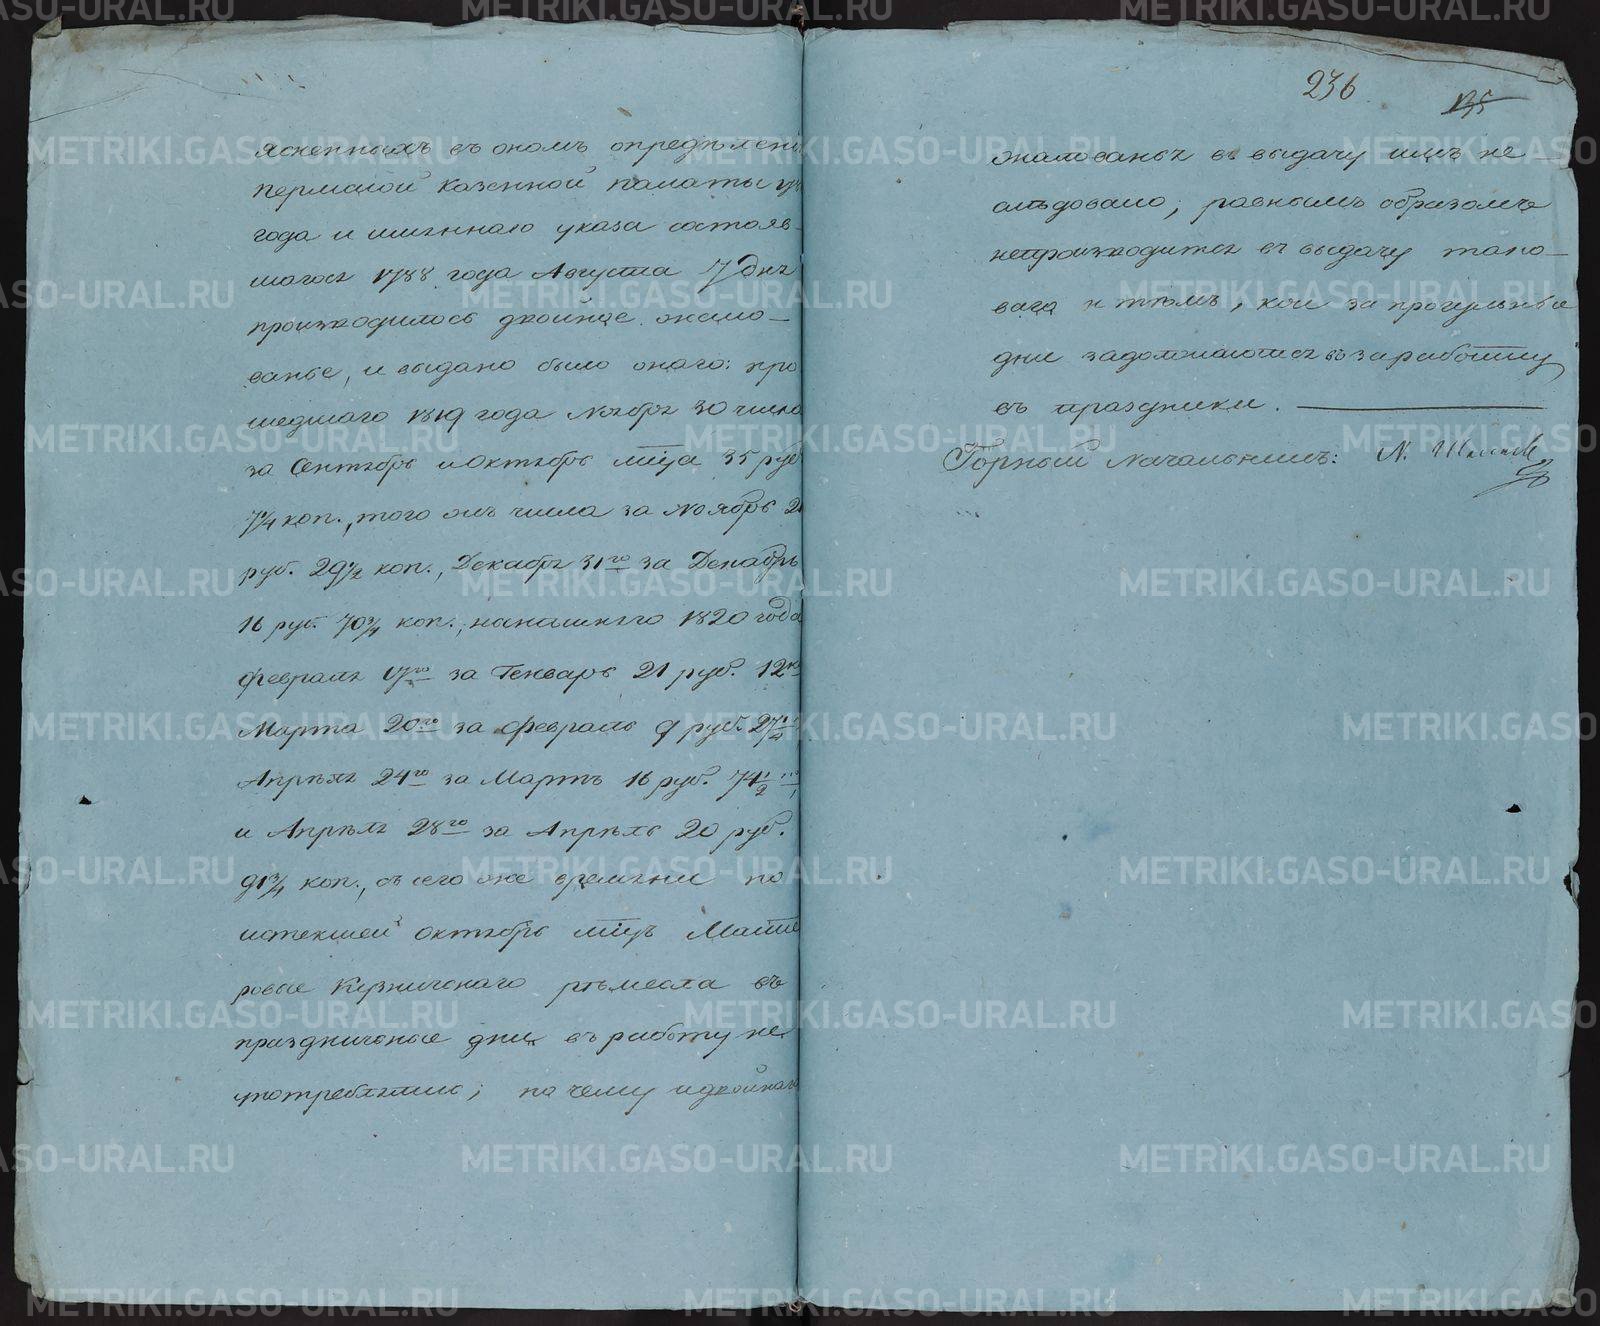 ясненныхъ въ ономъ опредѣлені
пермской казенной палаты
года и имяннаго указа состояв-
шагося 1788 года Августа 7 дня
производилось двойное жало-
ванье, и выдано было онаго: про
шедшаго 1819 года Ноября 30 числа
за Сентябрь и Октябрь мца 35 руб
7¼ коп., того жъ числа за Ноябрь 21
руб. 29½ коп., Декабря 31го за Декабрь
16 руб. 70¾ коп., нынашняго 1820 года
февраля 17го за Генварь 21 руб. 12 к
Марта 20го за февраль 9 руб. 27¼
Апрѣля 24го за Мартъ 16 руб. 74½
и Апрѣля 28го за Апрѣль 20 руб.
91¾ коп., съ сего же времяни по
истекшей октябрь мцъ Масте
ровые Кузничнаго рѣмесла въ
праздничные дни въ работу не
употреблялись; по чему и двойнаго
236
135
жалованья въ выдачу имъ не
слѣдовало; равнымъ образомъ
непроизводится въ выдачу тако-
вага и тѣмъ, кои за прогульные
дни задолжаются въ заработку
въ праздники.
Горный Начальникъ: Н.
METRIKI.GASO-URAL.RU